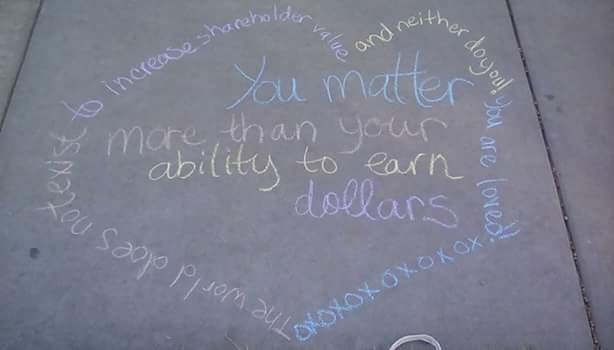 You matter
more than your
ability to earn
dollars
The world does not exist to increase shareholder value
and neither do you! You are loved!! oxoxoxoxoxoxox